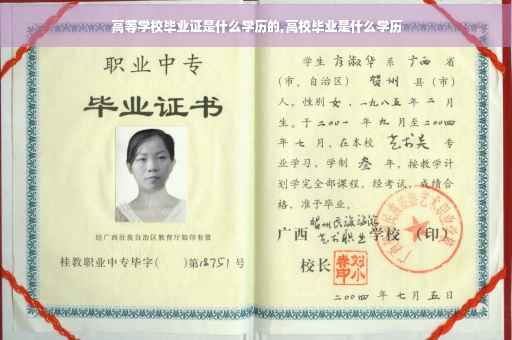 高等学校毕业证是什么学历的,高校毕业是什么学历
职业中专
毕业证书
经广西壮族自治区教育厅验印有效
桂教职业中专毕字（　　）第18751号
学生 方淑华 系 广西 省
（市、自治区） 贺州 县（市）
人，性别 女，一九八五年 二 月
生。于二〇〇一 年 九 月至二〇〇四
年 七 月，在本校 艺术类 专
业学习，学制 叁 年，按教学计
划学完全部课程，经考试，成绩合
格，准予毕业。
广西 贺州民族旅游
艺术职业 学校（印）
校长
二〇〇四 年 七 月 五 日